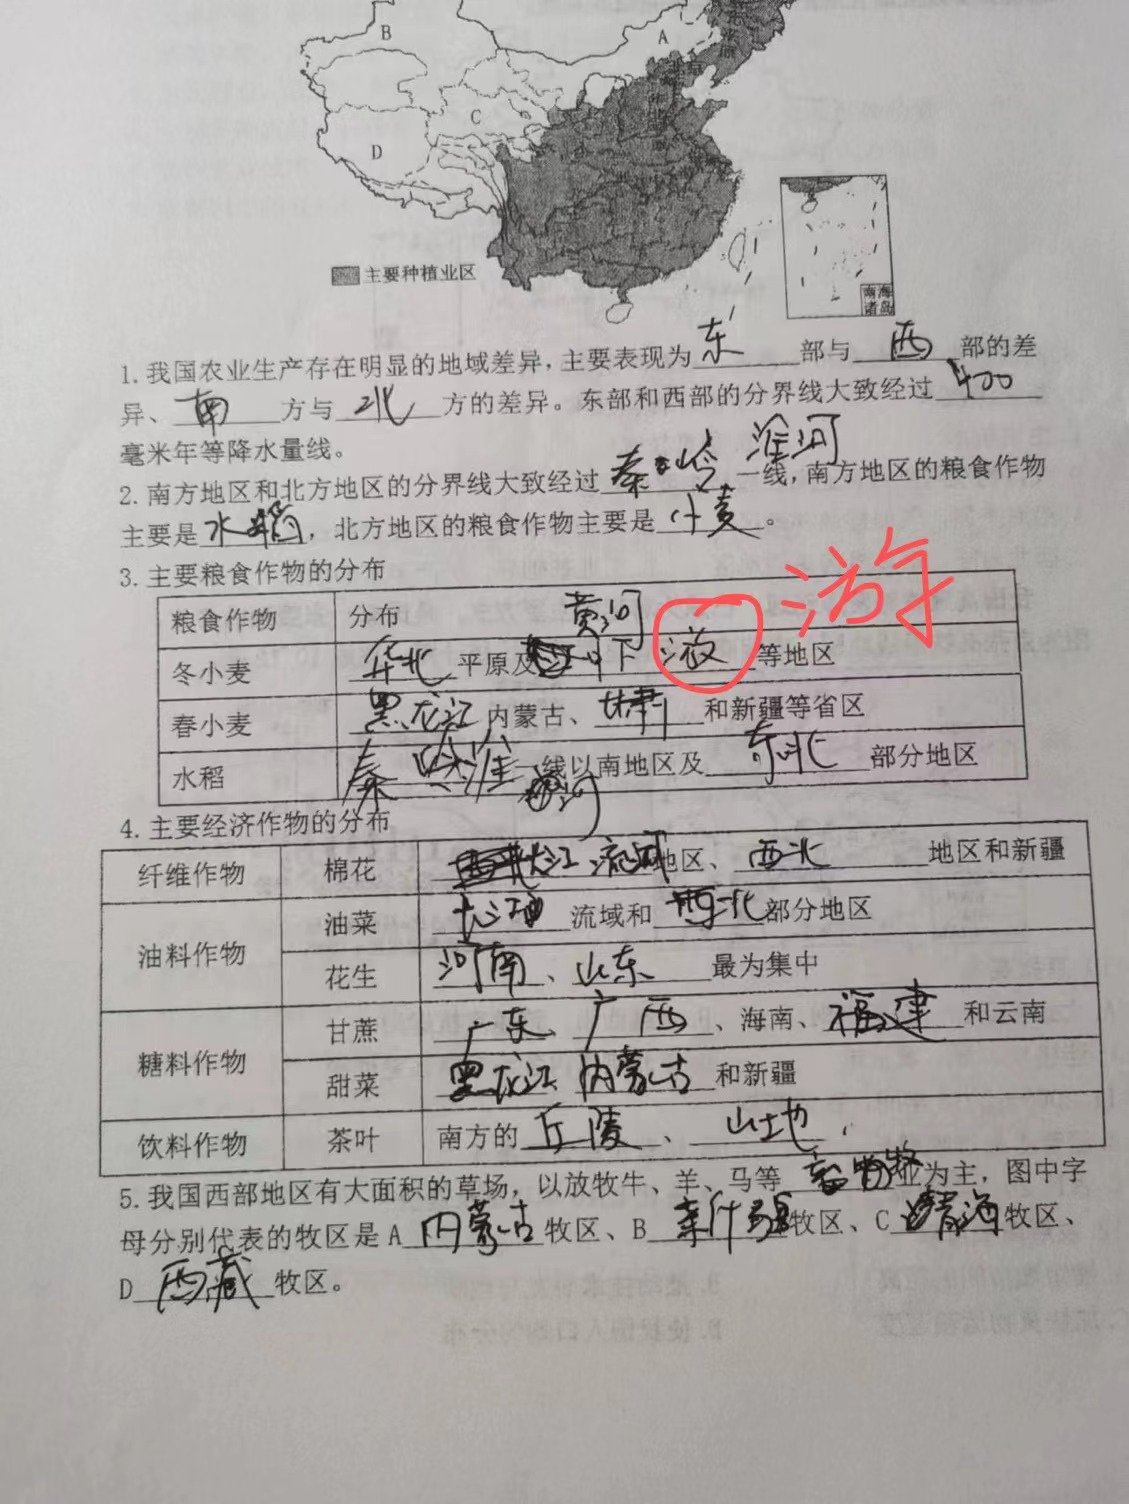 B
A
C
D
主要种植业区
南海
诸岛
1.我国农业生产存在明显的地域差异,主要表现为东部与西部的差
异、南方与北方的差异。东部和西部的分界线大致经过400
毫米年等降水量线。
淮河
2.南方地区和北方地区的分界线大致经过秦岭一线,南方地区的粮食作物
主要是水稻,北方地区的粮食作物主要是小麦。
游
3.主要粮食作物的分布
粮食作物 分布
黄河
冬小麦 华北平原及 中下液等地区
春小麦 黑龙江内蒙古、甘肃和新疆等省区
水稻 秦岭淮河一线以南地区及东北部分地区
4.主要经济作物的分布
纤维作物 棉花 长江流域地区、西北地区和新疆
油料作物 油菜 长江流域和西北部分地区
花生 河南、山东最为集中
糖料作物 甘蔗 广东、广西、海南、福建和云南
甜菜 黑龙江、内蒙古和新疆
饮料作物 茶叶 南方的丘陵、山地
5.我国西部地区有大面积的草场,以放牧牛、羊、马等畜牧业为主,图中字
母分别代表的牧区是A内蒙古牧区、B新疆牧区、C青海牧区、
D西藏牧区。